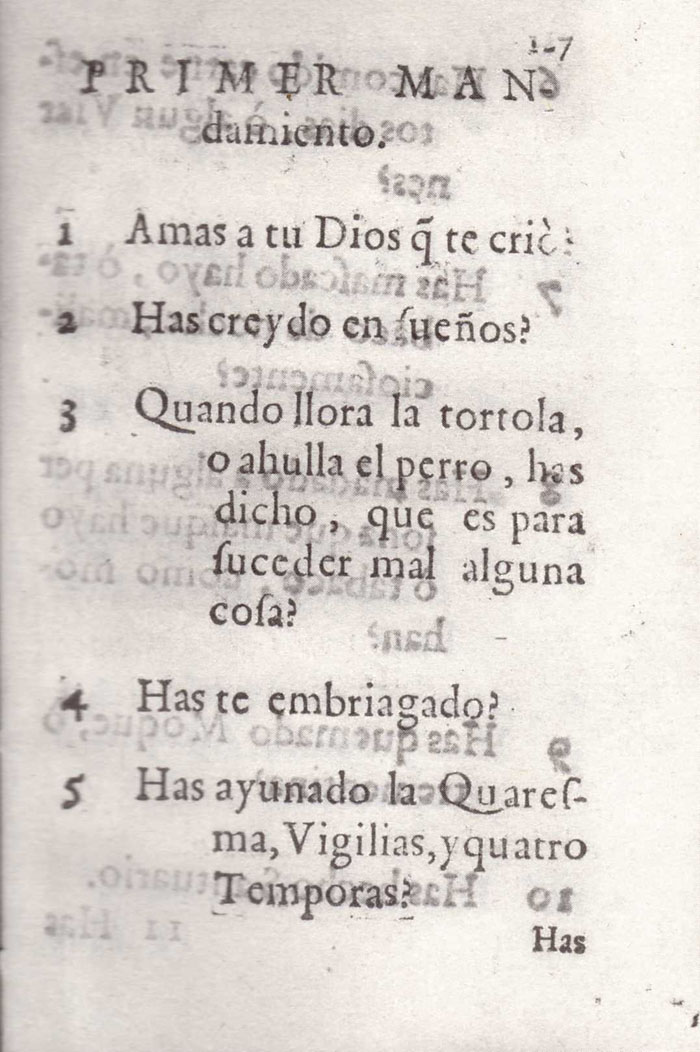 127
PRIMER MAN-
damiento.
1 Amas a tu Dios q̃ te criò?
2 Has creydo en ſueños?
3 Quando llora la tortola,
o ahulla el perro, has
dicho, que es para
ſuceder mal alguna
coſa?
4 Has te embriagado?
5 Has ayunado la Quareſ-
ma, Vigilias, y quatro
Temporas?
Has